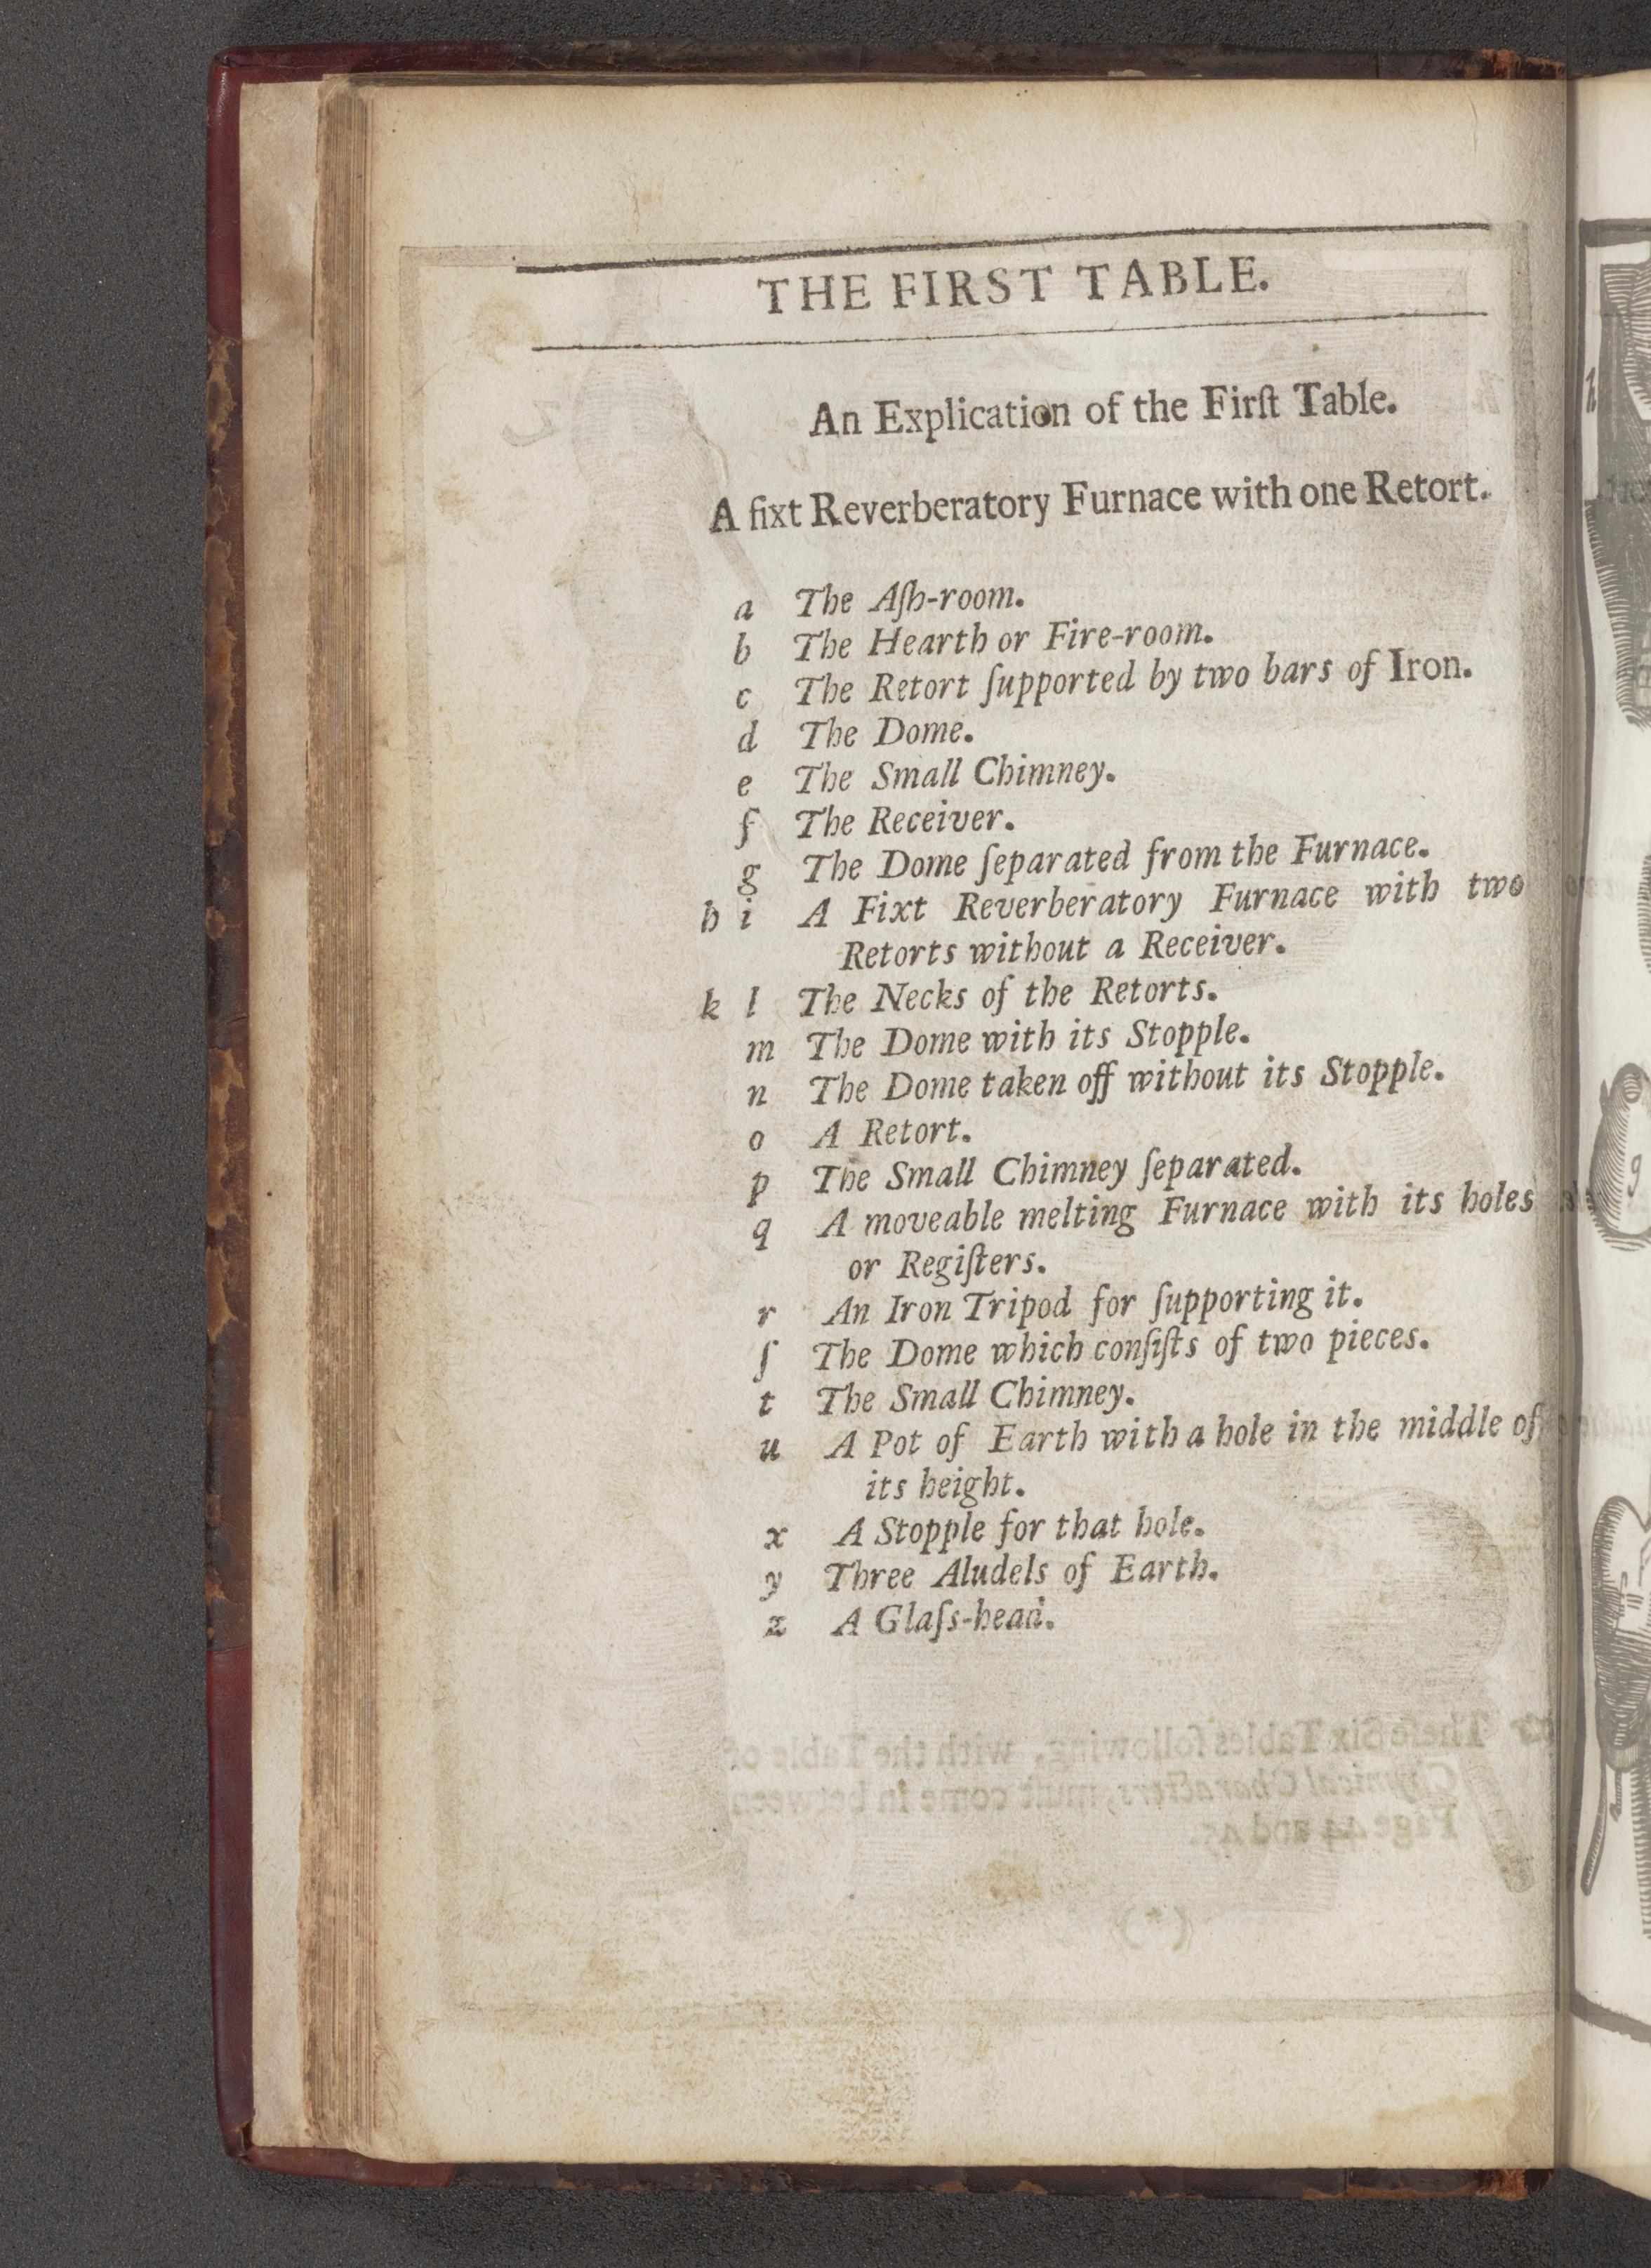 THE FIRST TABLE.
An Explication of the Firſt Table.
A fixt Reverberatory Furnace with one Retort.
a The Aſh-room.
b The Hearth or Fire-room.
c The Retort ſupported by two bars of Iron.
d The Dome.
e The Small Chimney.
f The Receiver.
g The Dome ſeparated from the Furnace.
h i A Fixt Reverberatory Furnace with two
Retorts without a Receiver.
k l The Necks of the Retorts.
m The Dome with its Stopple.
n The Dome taken off without its Stopple.
o A Retort.
p The Small Chimney ſeparated.
q A moveable melting Furnace with its holes
or Regiſters.
r An Iron Tripod for ſupporting it.
ſ The Dome which conſiſts of two pieces.
t The Small Chimney.
u A Pot of Earth with a hole in the middle of
its height.
x A Stopple for that hole.
y Three Aludels of Earth.
z A Glaſs-head.
Theſe Six Tables following, with the Table of
Chymical Characters, muſt come in between
Page 44 and 45.
(*)
h
g